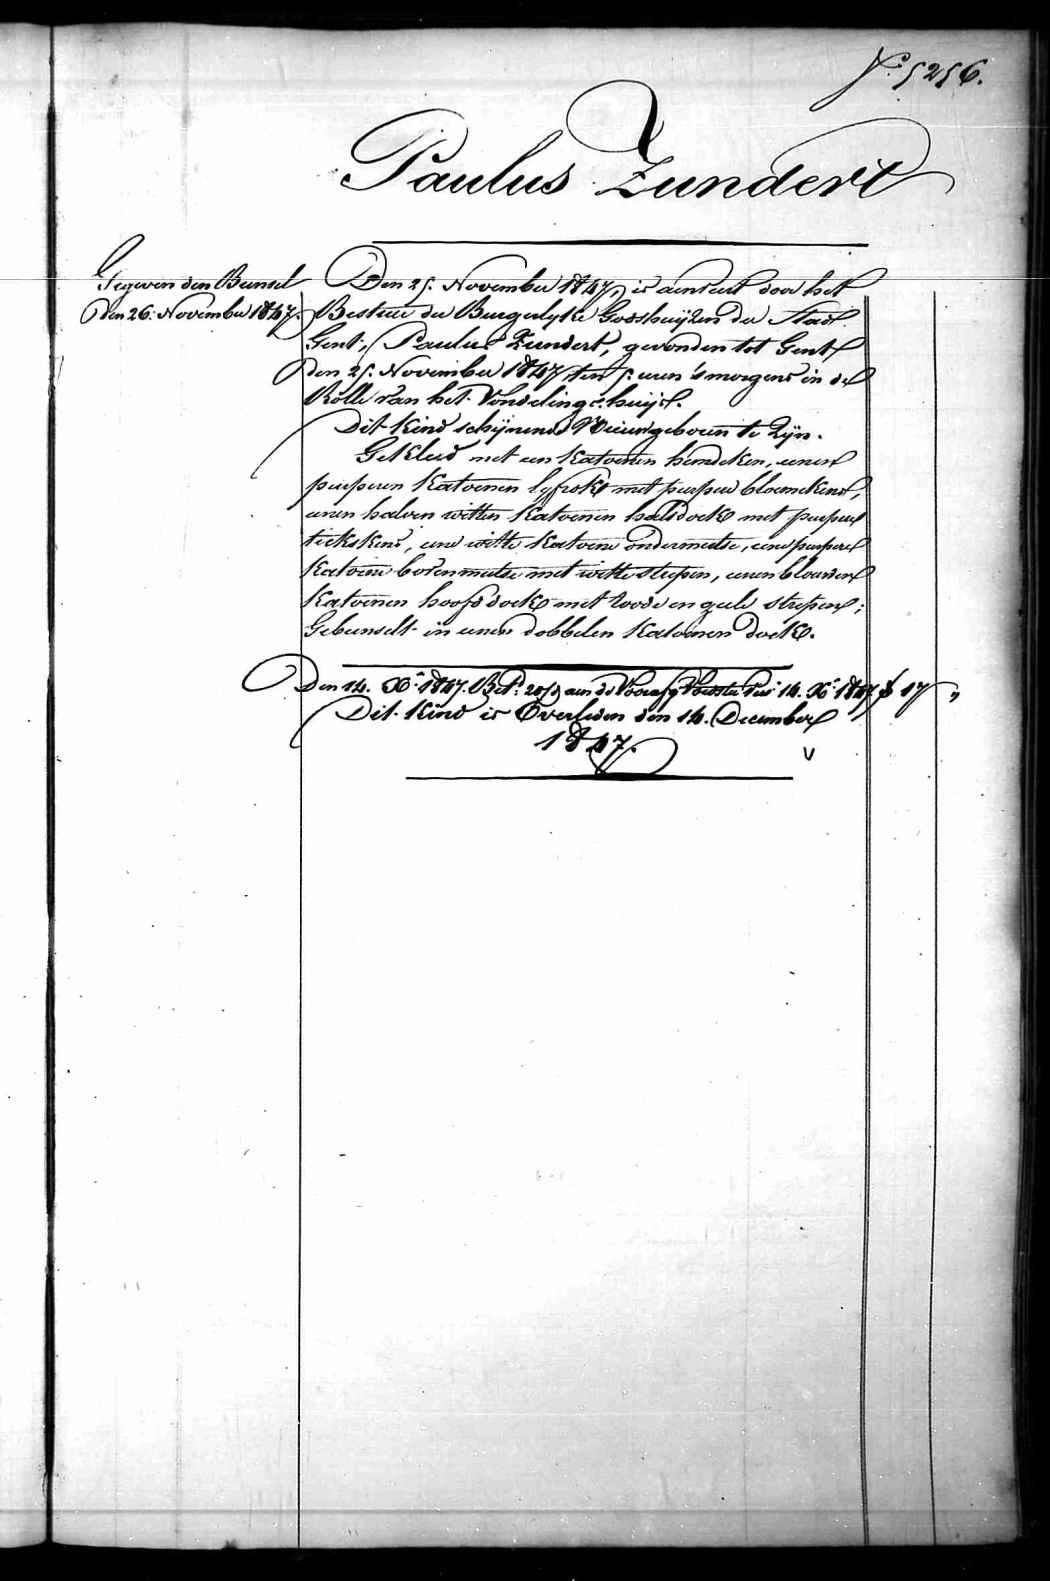 N.º 5256.
Paulus Zundert
Gegeven den Bunsel
Den 26: November 1847.
Den 25: November 1847, is aenveert door het
Bestuur der Burgerlyke Godshuijzen der Stad
Gent, Paulus Zundert, gevonden tot Gent
den 25: November 1847 ten 5: uren 's morgens in de
Rolle van het Vondelingshuijs.
Dit Kind schijnende Nieuwgeboren te Zijn.
Gekleed met een Katoenen hemdeken, eenen
purperen Katoenen lyfrok met purpere bloemekens,
eenen halven witten Katoenen halsdoek met purpere
tickskens, eene witte Katoene ondermutse, eene purpere
Katoene bovenmutse met witte strepen, eenen blauwen
Katoenen hoofddoek met roode en geele strepen;
Gebunselt in eenen dobbelen Katoenen Doek.
Den 14. Xº. 1847. Bet: aen de 14. Xº 1847 17 "
Dit Kind is Overleden den 14. December
1847.